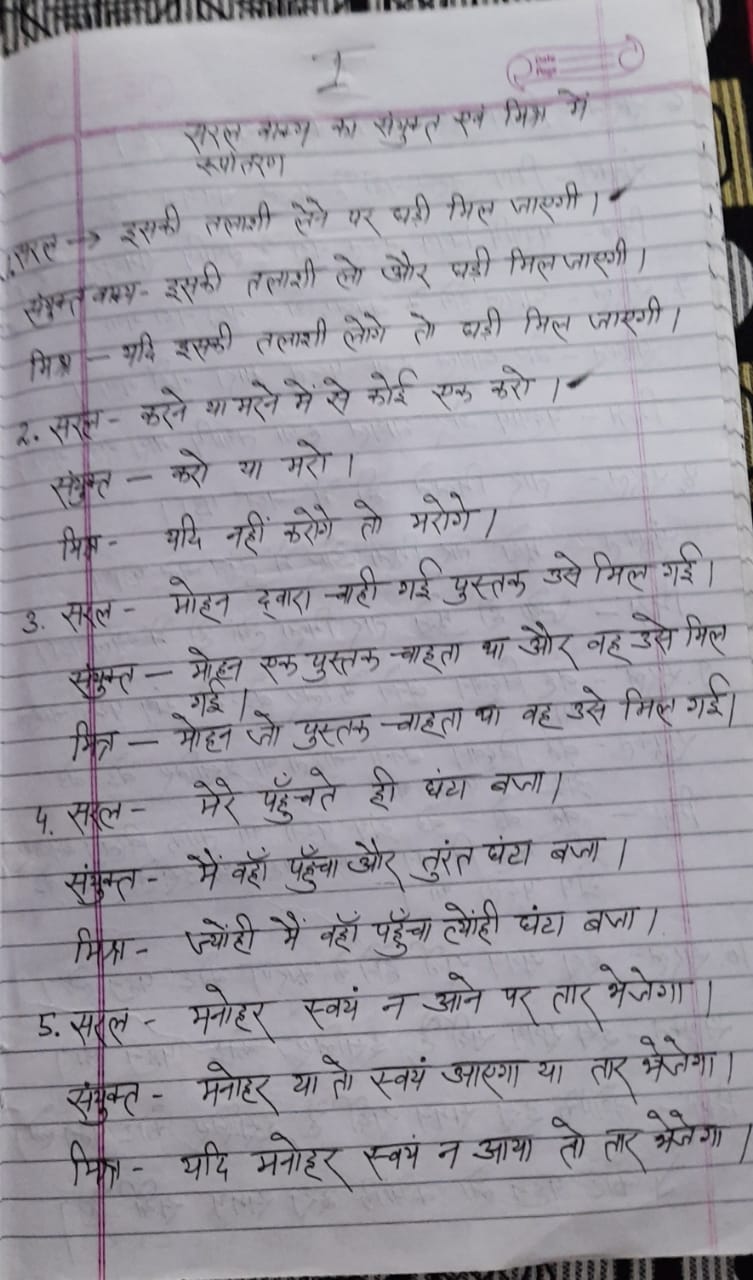 I
सरल वाक्य का संयुक्त एवं मिश्र में
रूपांतरण
1. सरल → इसकी तलाशी लेने पर घड़ी मिल जाएगी।
संयुक्त वाक्य - इसकी तलाशी लो और घड़ी मिल जाएगी।
मिश्र — यदि इसकी तलाशी लोगे तो घड़ी मिल जाएगी।
2. सरल - करने या मरने में से कोई एक करो।
संयुक्त — करो या मरो।
मिश्र - यदि नहीं करोगे तो मरोगे।
3. सरल - मोहन द्वारा चाही गई पुस्तक उसे मिल गई।
संयुक्त — मोहन एक पुस्तक चाहता था और वह उसे मिल
गई।
मिश्र — मोहन जो पुस्तक चाहता था वह उसे मिल गई।
4. सरल - मेरे पहुँचते ही घंटा बजा।
संयुक्त - मैं वहाँ पहुँचा और तुरंत घंटा बजा।
मिश्र - ज्योंही मैं वहाँ पहुँचा त्योंही घंटा बजा।
5. सरल - मनोहर स्वयं न आने पर तार भेजेगा।
संयुक्त - मनोहर या तो स्वयं आएगा या तार भेजेगा।
मिश्र - यदि मनोहर स्वयं न आया तो तार भेजेगा।